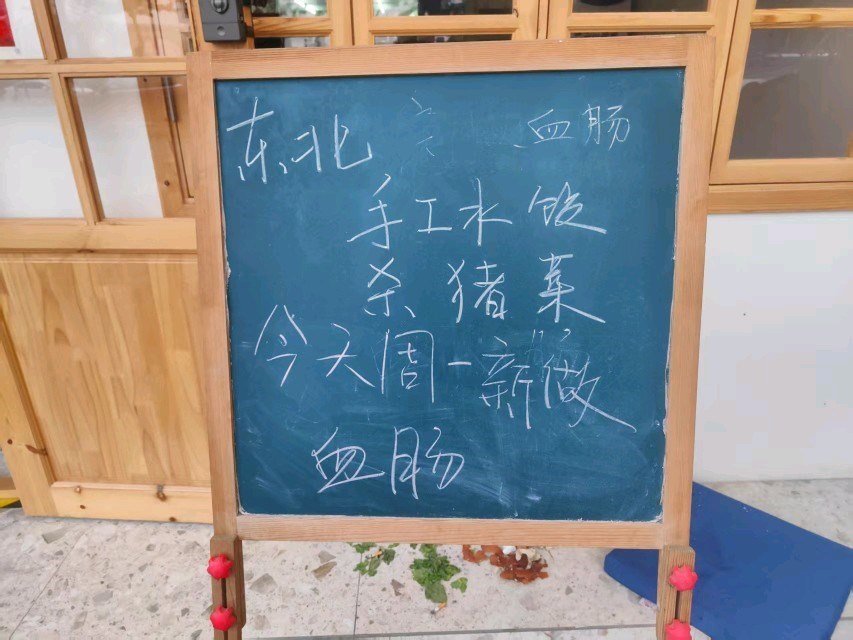 东北 血肠
手工水饺
杀猪菜
今天周一新做
血肠